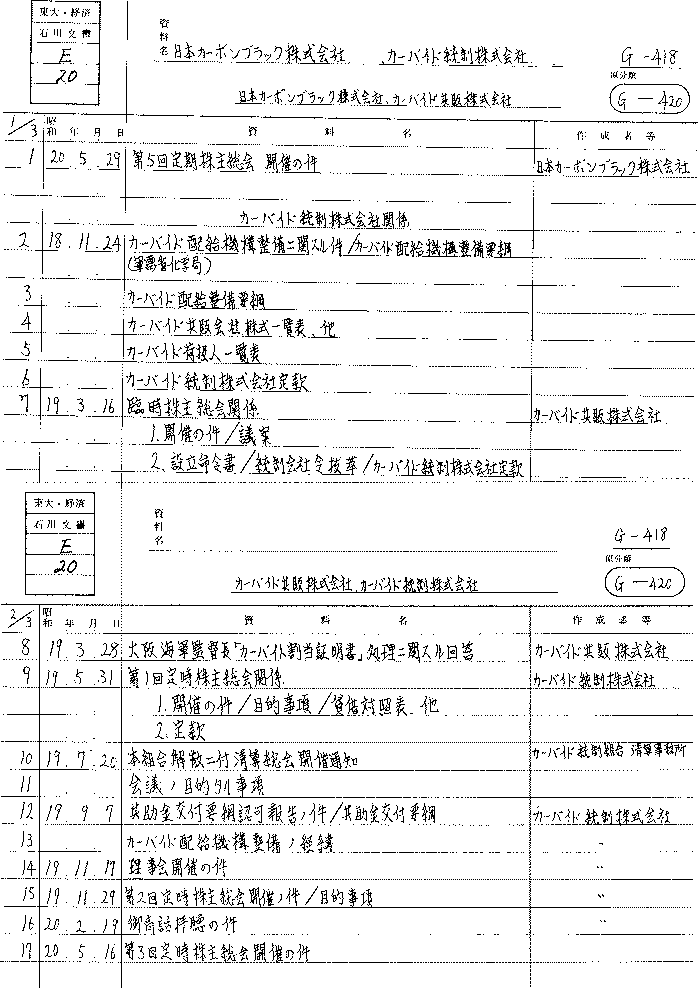 東大・経済
石川文書
E
20
資料名 日本カーボンブラック株式会社、カーバイド統制株式会社
G-418
原分類
G-420
日本カーボンブラック株式会社、カーバイド共販株式会社
1/3 昭和 年 月 日 資料名 作成者等
1 20 5 29 第5回定期株主総会 開催の件 日本カーボンブラック株式会社
カーバイド統制株式会社関係
2 18 11 24 カーバイド配給機構整備ニ関スル件/カーバイド配給機構整備要綱
(軍需省化学局)
3 カーバイド配給整備要綱
4 カーバイド共販会社株式一覧表、他
5 カーバイド荷扱人一覧表
6 カーバイド統制株式会社定款
7 19 3 16 臨時株主総会関係 カーバイド共販株式会社
1. 開催の件/議案
2. 設立命令書/統制会社令抜萃/カーバイド統制株式会社定款
東大・経済
石川文書
E
20
資料名
G-418
原分類
G-420
カーバイド共販株式会社、カーバイド統制株式会社
2/3 昭和 年 月 日 資料名 作成者等
8 19 3 28 大阪海軍監督長「カーバイト割当証明書」処理ニ関スル回答 カーバイド共販株式会社
9 19 5 31 第1回定時株主総会関係 カーバイド統制株式会社
1. 開催の件/目的事項/貸借対照表、他
2. 定款
10 19 7 20 本組合解散ニ付清算総会開催通知 カーバイド統制組合 清算事務所
11 会議ノ目的タル事項
12 19 9 7 共助金交付要綱認可報告ノ件/共助金交付要綱 カーバイド統制株式会社
13 カーバイド配給機構整備ノ経緯 〃
14 19 11 17 理事会開催の件 〃
15 19 11 29 第2回定時株主総会開催ノ件/目的事項 〃
16 20 2 19 御高話拝聴の件 〃
17 20 5 16 第3回定時株主総会開催の件